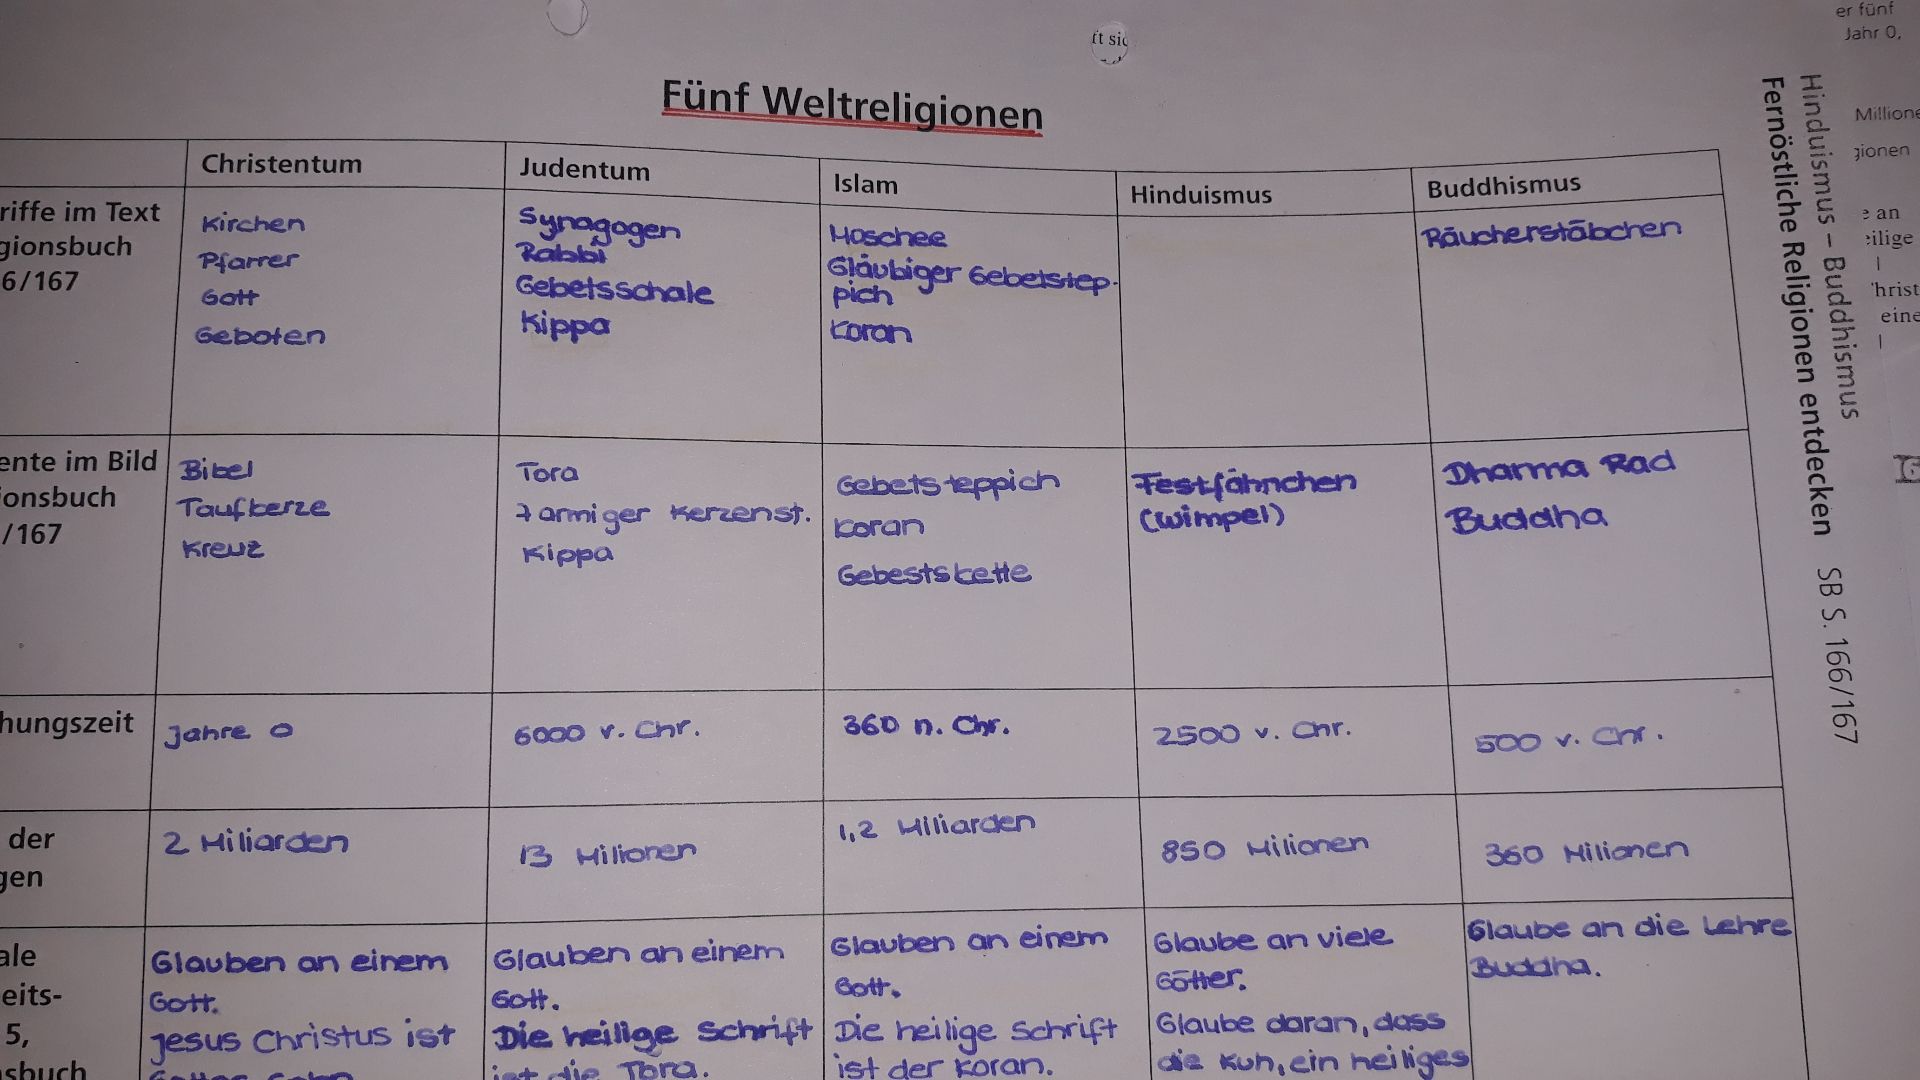 er fünf
Jahr 0,
ft sic
Fünf Weltreligionen
Millione
gionen
Christentum
Judentum
Islam
Hinduismus
Buddhismus
riffe im Text
gionsbuch
6/167
Kirchen
Pfarrer
Gott
Geboten
Synagogen
Rabbi
Gebetsschale
Kippa
Moschee
Gläubiger Gebetstep-
pich
Koran
Räucherstäbchen
ente im Bild
ionsbuch
/167
Bibel
Taufkerze
Kreuz
Tora
7 armiger Kerzenst.
Kippa
Gebetsteppich
Koran
Gebestskette
Festfähnchen
(Wimpel)
Dharma Rad
Buddha
hungszeit
Jahre 0
6000 v. Chr.
360 n. Chr.
2500 v. Chr.
500 v. Chr.
der
gen
2 Miliarden
13 Milionen
1,2 Miliarden
850 Milionen
360 Milionen
ale
eits-
5,
sbuch
Glauben an einem
Gott.
Jesus Christus ist
Gottes Sohn
Glauben an einem
Gott.
Die heilige Schrift
ist die Tora.
Glauben an einem
Gott.
Die heilige Schrift
ist der Koran.
Glaube an viele
Götter.
Glaube daran, dass
die Kuh, ein heiliges
Glaube an die Lehre
Buddha.
Hinduismus – Buddhismus
Fernöstliche Religionen entdecken SB S. 166/167
e an
eilige
–
Christ
eine
–